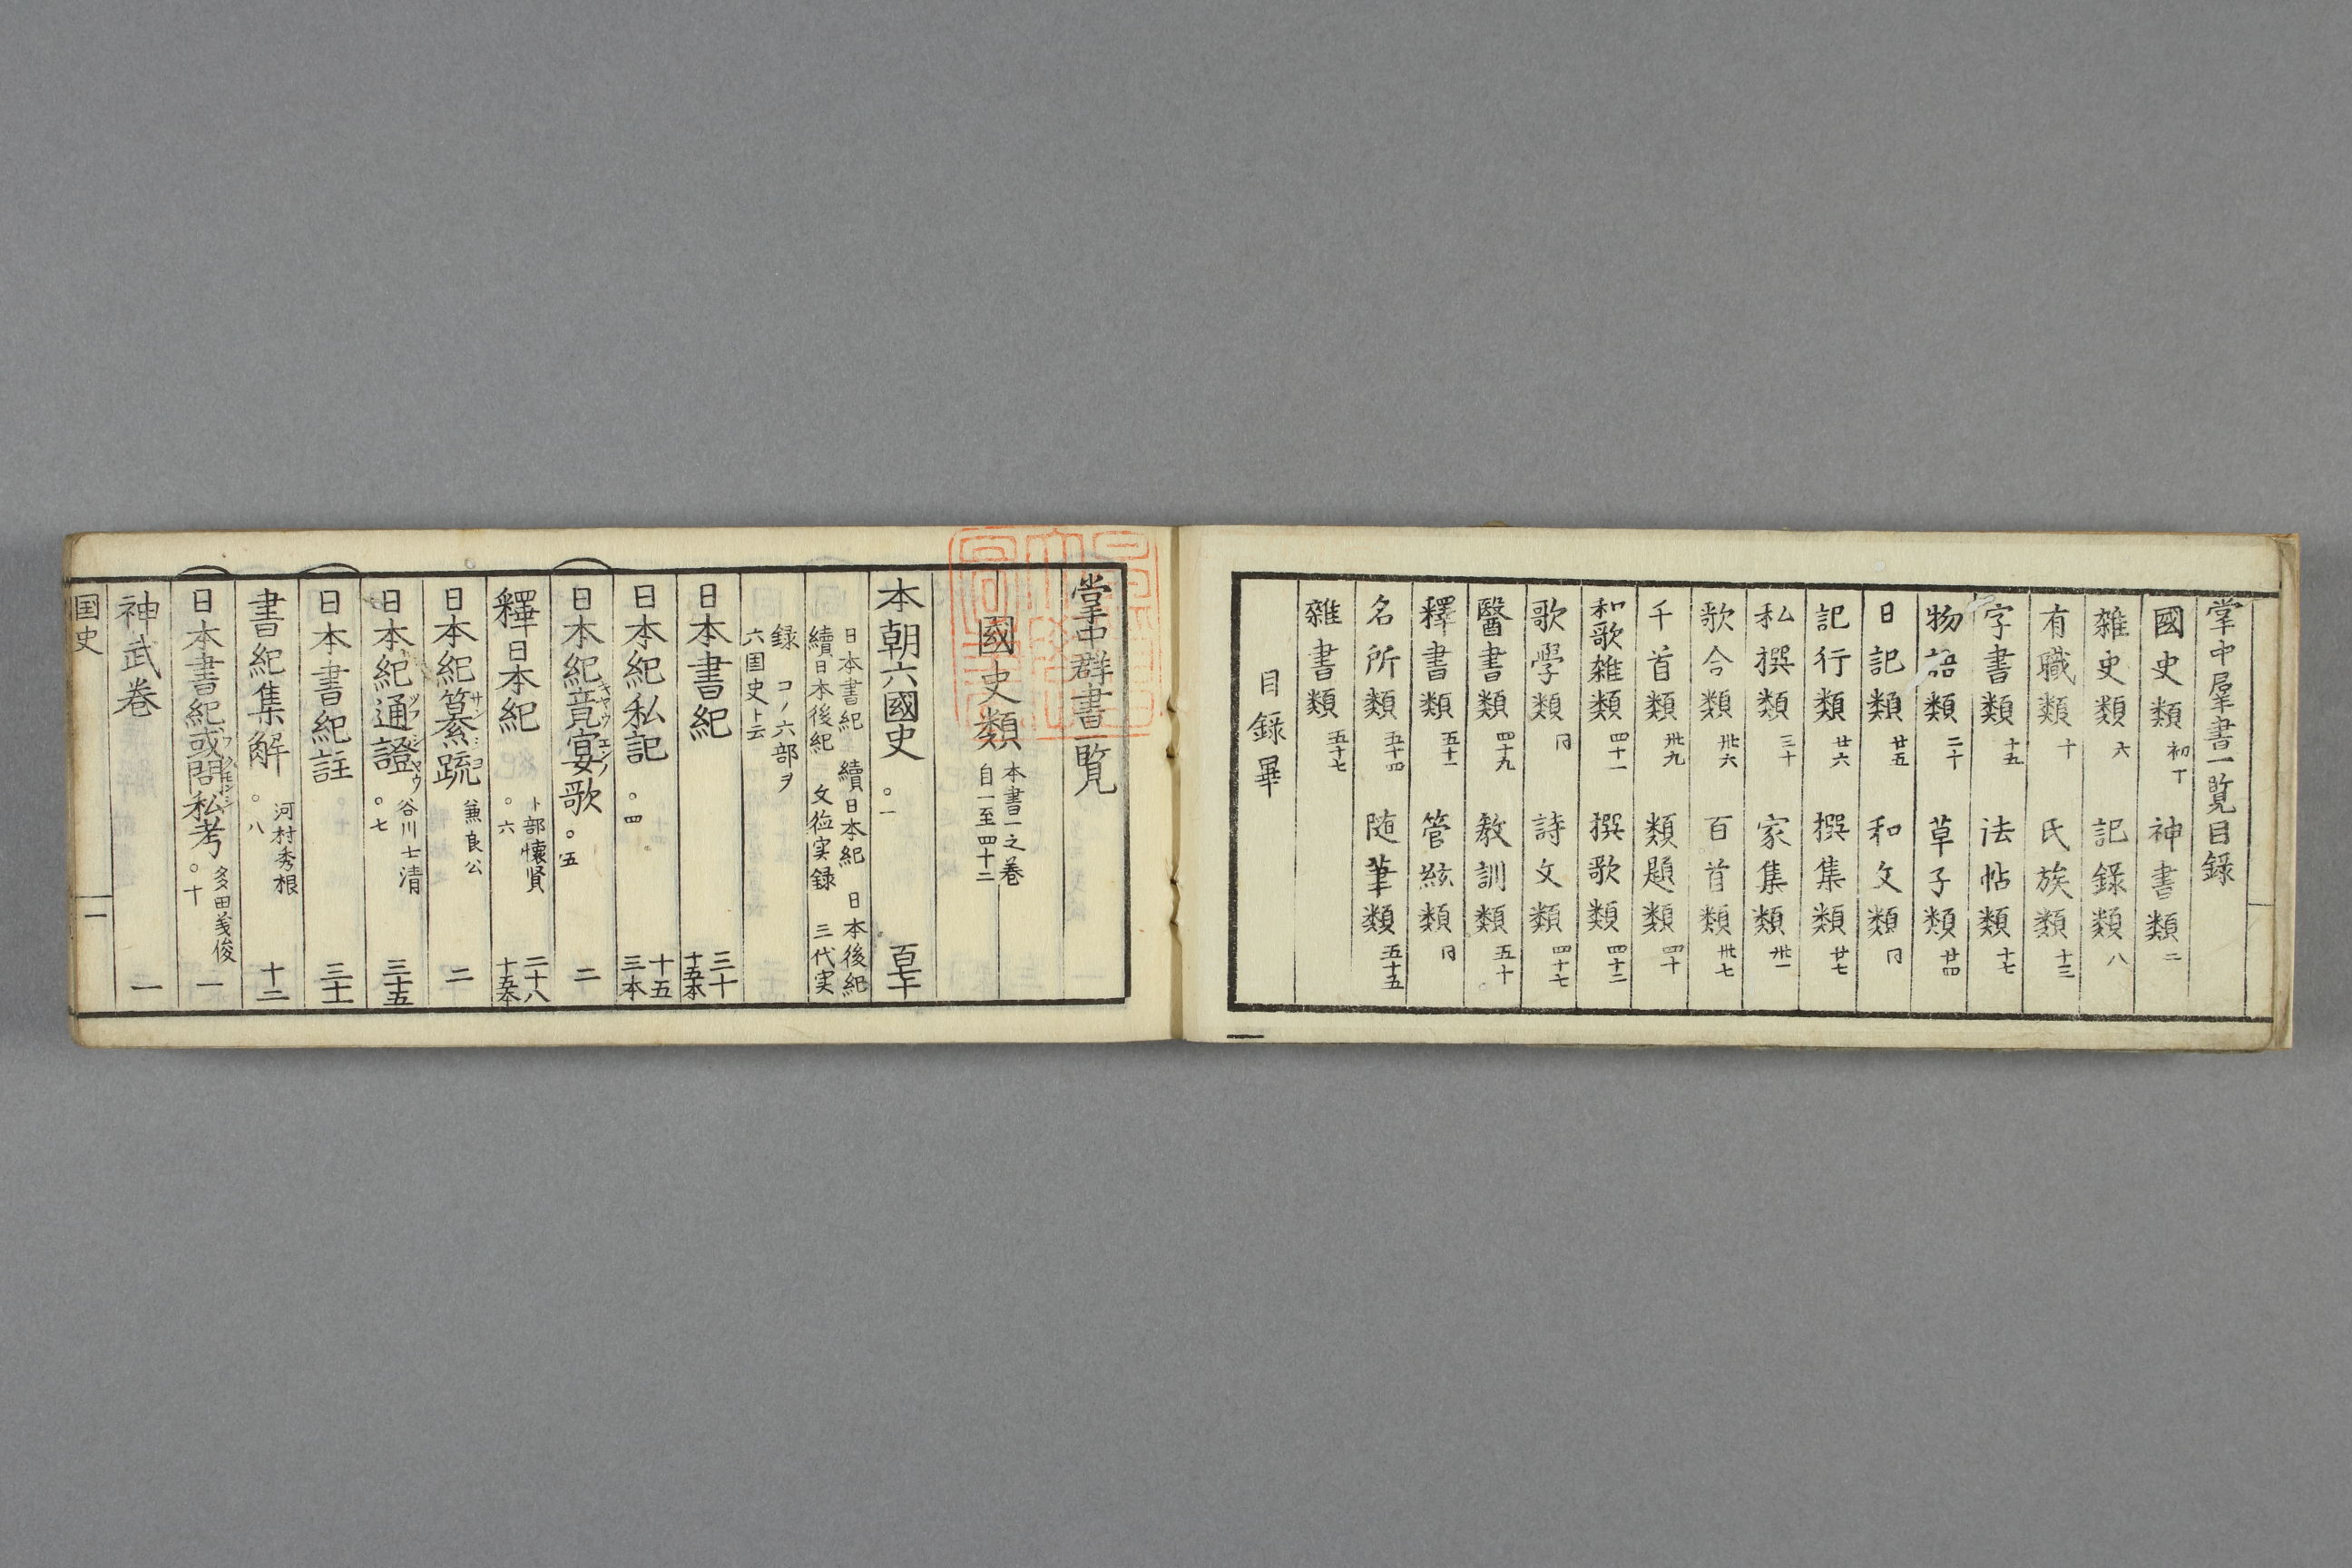 掌中羣書一覧目録
國史類 初丁 神書類 二
雜史類 六 記録類 八
有職類 十 氏族類 十三
字書類 十五 法帖類 十七
物語類 二十 草子類 廿四
日記類 廿五 和文類 同
記行類 廿六 撰集類 廿七
私撰類 三十 家集類 卅一
歌合類 卅六 百首類 卅七
千首類 卅九 類題類 四十
和歌雜類 四十一 撰歌類 四十二
歌學類 同 詩文類 四十七
醫書類 四十九 教訓類 五十
釋書類 五十一 管絃類 同
名所類 五十四 随筆類 五十五
雜書類 五十七
目録畢
掌中群書一覧
國史類 本書一之巻
自一至四十二
本朝六國史 。一 百七十
日本書紀 續日本紀 日本後紀
續日本後紀 文徳実録 三代実
録 コノ六部ヲ
六国史ト云
日本書紀 三十
十五本
日本紀私記 。四 十五
三本
日本紀竟宴歌 キヤウエンノ 。五 二
釋日本紀 卜部懐賢
。六 二十八
十五本
日本紀纂疏 サンシヨ 兼良公 二
日本紀通證 ツウシヤウ 谷川士清
。七 三十五
日本書紀註 三十
書紀集解 河村秀根
。八 十二
日本書紀或問私考 ワクモンシ 多田義俊
。十 一
神武巻 一
国史 一